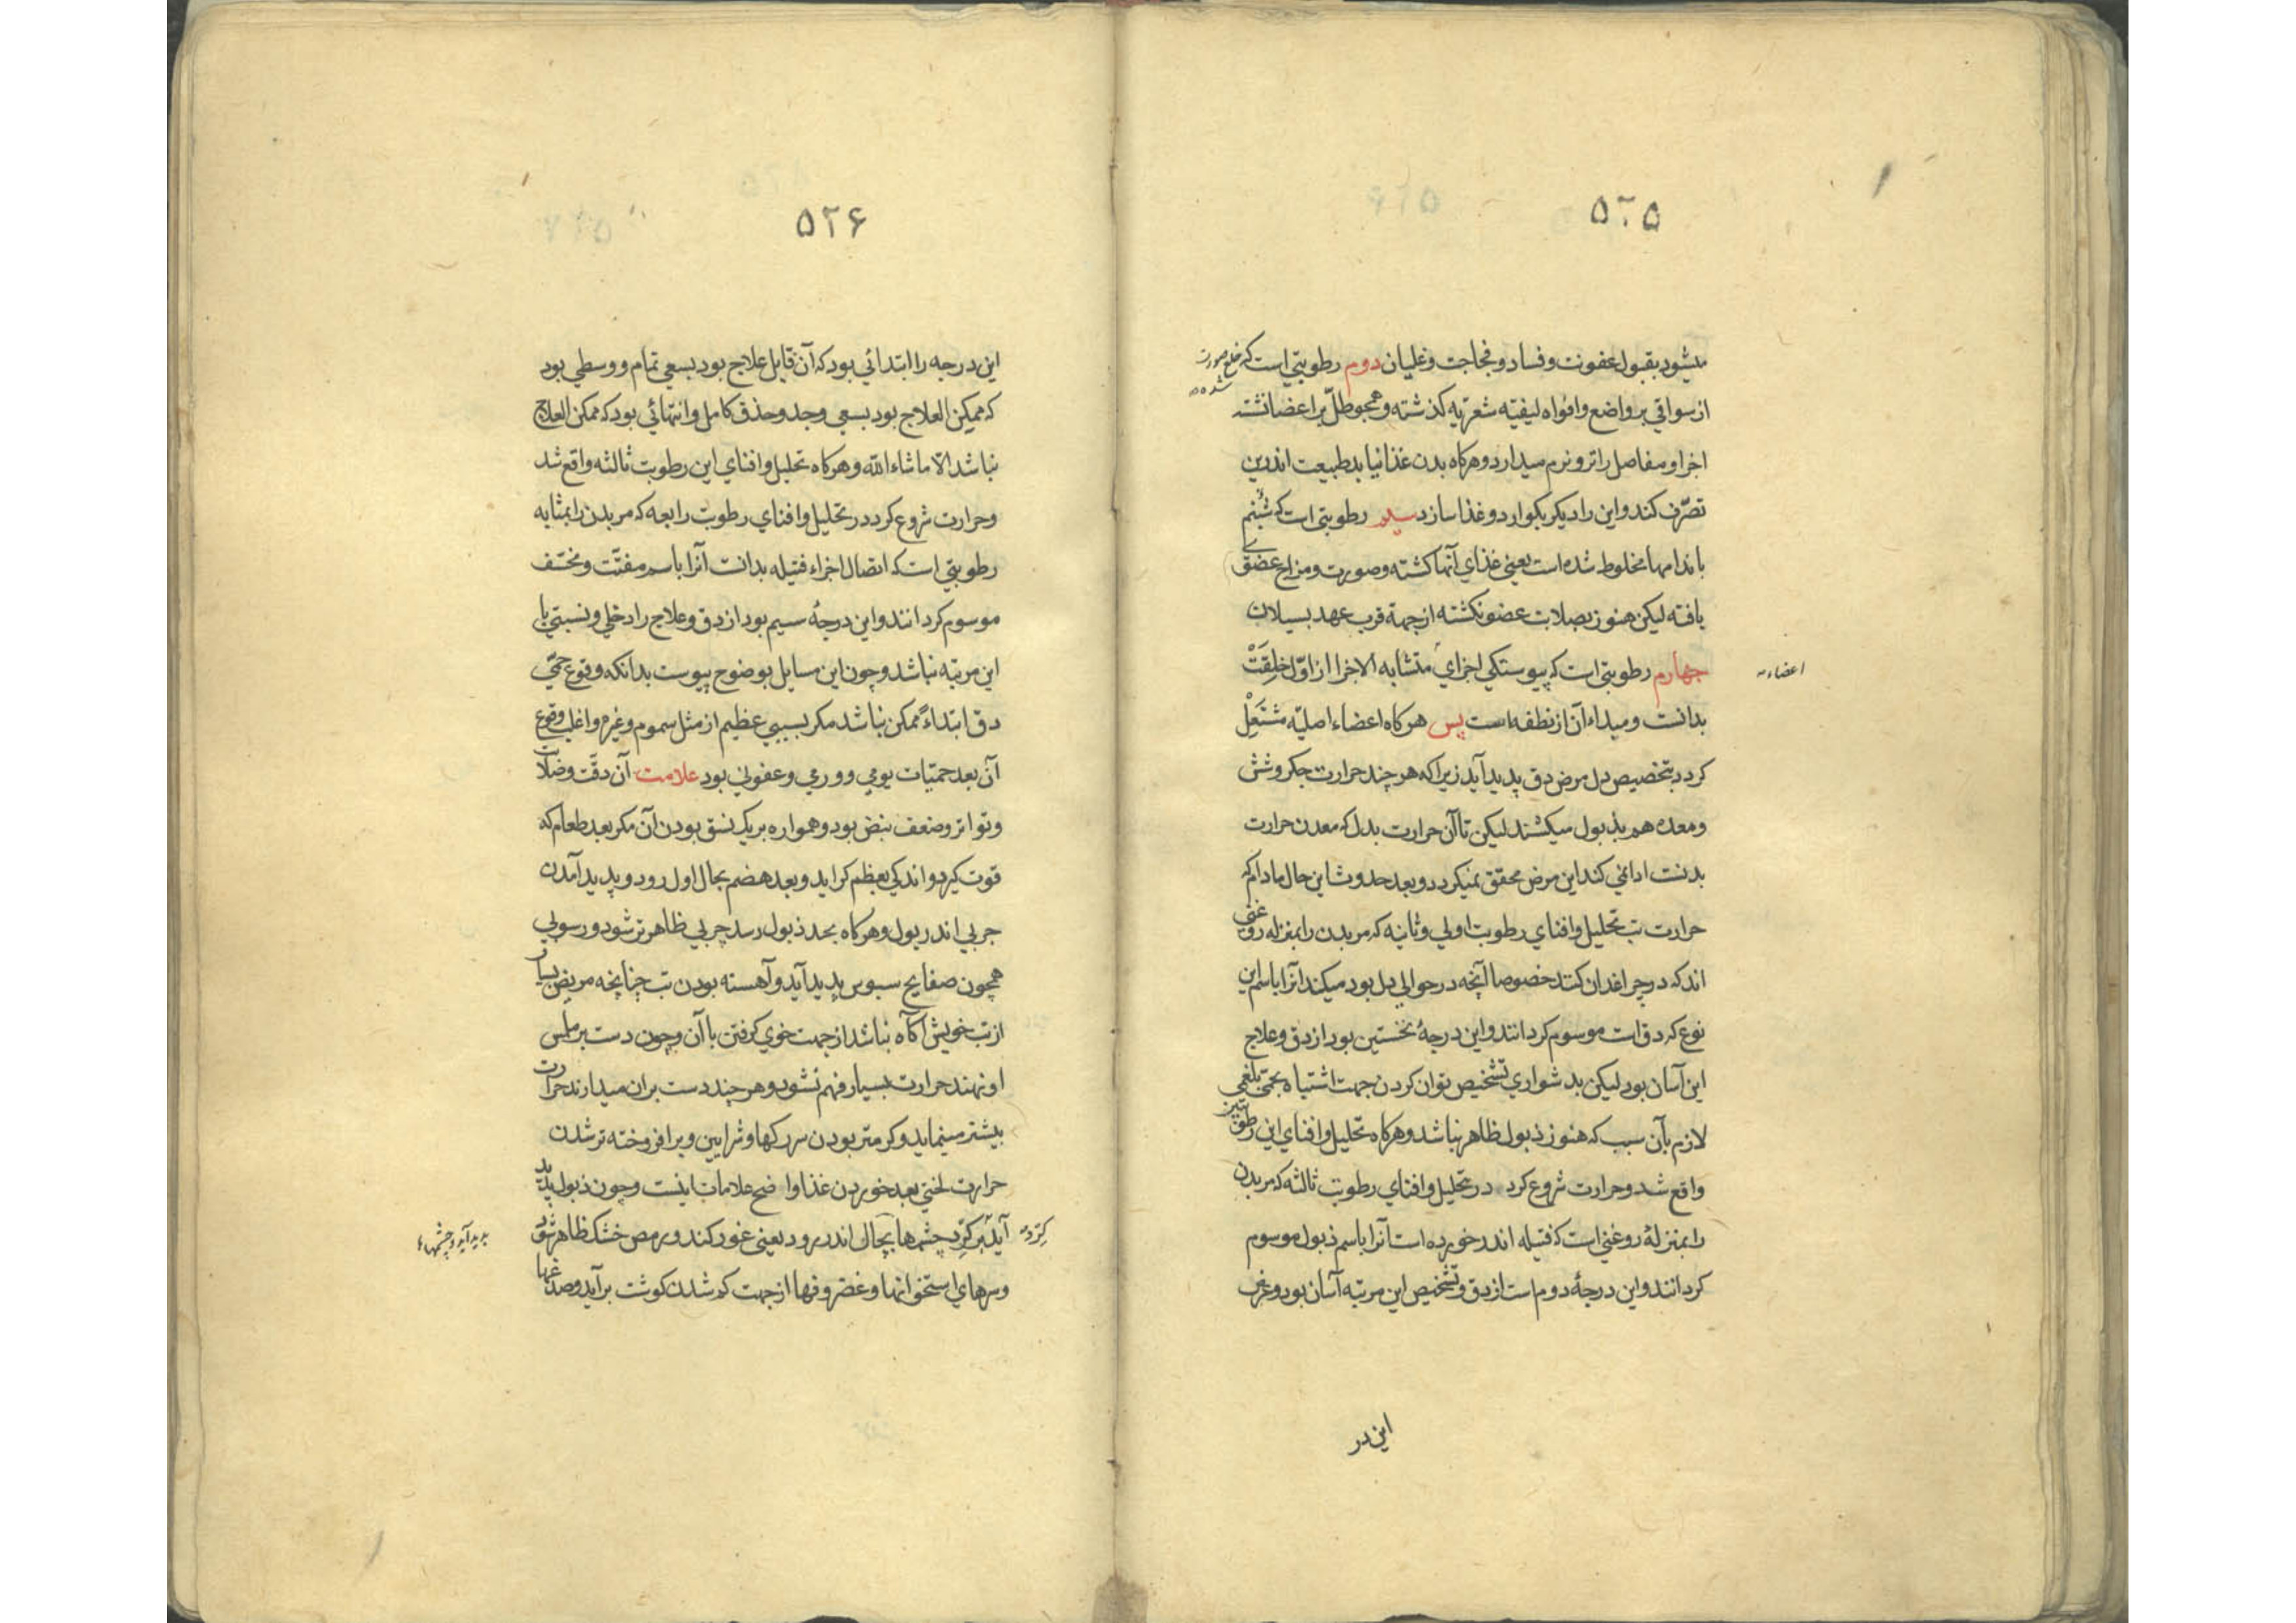 ۵۲۵
میشود بقبول عفونت و فساد و فجاجت و غلیان دوم رطوبتی است که
شده
از سواقی بر واضع و افواه لیفیه شعریه کذشته و همچو طلّ بر اعضا نشته
اجزا و مفاصل را تر و نرم میدارد و هرکاه بدن غذا نیابد طبیعت اندرین
تصرّف کند و این را دیکر بکوارد و غذا سازد سیم رطوبتی است که شبنم
باندامها مخلوط شده است یعنی غذای آنها کشته و صورت و مزاج عضوی
یافته لیکن هنوز بصلابت عضو نکشته از جهة قرب عهد بسیلان
چهارم رطوبتی است که پیوستکی اجزای متشابه الاجزا از اوّل خلقت
اعضاء
بدانت و مبداء آن از نطفه است پس هرکاه اعضاء اصلیّه مشتعل
کردد بتخصیص دل مرض دق پدید آید زیرا که هر چند حرارت جکر و شش
و معده هم بذبول میکشند لیکن تا آن حرارت بدل که معدن حرارت
بدنت ادانمی کند این مرض محقق نمیکردد و بعد حدوث این حال مادام که
حرارت تب تحلیل و افنای رطوبت اولی و ثانیه که مر بدن را بمنزله روغنی
اند که در چراغدان کنند خصوصا آنچه در حوالی دل بود میکند انرا باسم این
نوع که دق است موسوم کردانند و این درجهٔ نخستین بود از دق و علاج
این آسان بود لیکن بدشواری تشخیص توان کردن جهت اشتباه بحمی بلغمی
لازم بآن سبب که هنوز ذبول ظاهر نباشد و هرکاه تحلیل و افنای این رطوبتین
واقع شد و حرارت شروع کرد در تحلیل و افنای رطوبت ثالثه که مر بدن
را بمنزلهٔ روغنی است که فتیله اندر خورده است آنرا باسم ذبول موسوم
کردانند و این درجهٔ دوم است از دق و تشخیص این مرتبه آسان بود و غرض
این در
۵۲۶
این درجه را ابتدائی بود که آن قابل علاج بود بسعی تمام و وسطی بود
که ممکن العلاج بود بسعی وجد و حذق کامل و انتهائی بود که ممکن العلاج
نباشد الّا ماشاء اللّه و هرکاه تحلیل و افنای این رطوبت ثالثه واقع شد
و حرارت شروع کرد در تحلیل و افنای رطوبت رابعه که مر بدن را بمثابه
رطوبتی است که اتصال اجزاء فتیله بدانت آنرا باسم مفتّت و مخشف
موسوم کردانند و این درجهٔ سیم بود از دق و علاج را دخلی و نسبتی با
این مرتبه نباشد و چون این مسایل بوضوح پیوست بدانکه وقوع حمّی
دق ابتداءً ممکن نباشد مکر بسببی عظیم از مثل سموم و غیره و اغلب وقوع
آن بعد حمیّات یومی و ورمی و عفونی بود علامت آن دقّت و صلابت
و تواتر و ضعف نبض بود و همواره بر یک نسق بودن آن مکر بعد طعام که
قوت کیرد و اندکی بعظم کراید و بعد هضم بحال اول رود و پدید آمدن
چربی اندر بول و هرکاه بحد ذبول رسد چربی ظاهرتر شود و رسوبی
همچون صفایح سبوس پدید آید و آهسته بودن تب چنانچه مریض بسیار
از تب خویش آکاه نباشد از جهت خوی کرفتن با آن و چون دست بر ملس
او نهند حرارت بسیار فهم نشود و هر چند دست بران میدارند حرارت
بیشتر مینماید و کرمتر بودن سر رکها و شرایین و برافروخته تر شدن
حرارت لختی بعد خوردن غذا و اوضح علامات اینست و چون ذبول پدید
آید بر کرد چشمها بحال اندر رود یعنی غور کند و رمص خشک ظاهر شود
کرد
پدید آید و چشمها
و سرهای استخوانها و غضروفها از جهت کم شدن کوشت برآید و صدغها